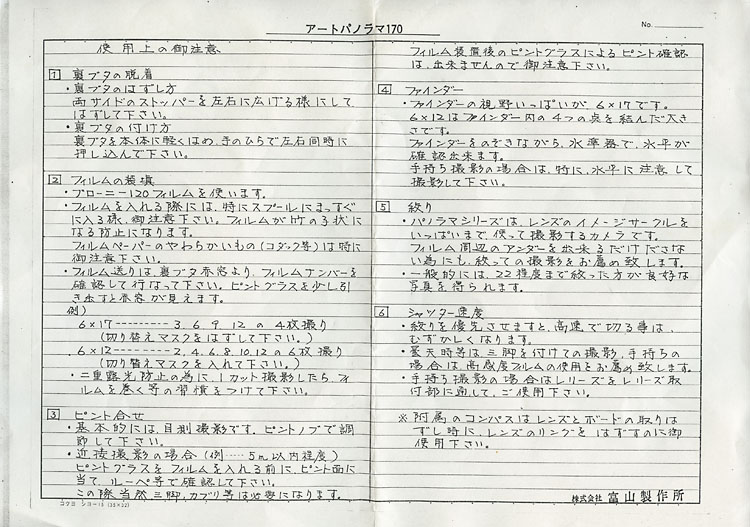 アートパノラマ170
No.
使用上の御注意
1 裏ブタの脱着
・裏ブタのはずし方
両サイドのストッパーを左右に広げる様にして
はずして下さい。
・裏ブタの付け方
裏ブタを本体に軽くはめ、手のひらで左右同時に
押し込んで下さい。
2 フィルムの装填
・ブローニー120フィルムを使います。
・フィルムを入れる際には、特にスプールにまっすぐに
入る様、御注意下さい。フィルムが竹の子状に
なる防止になります。
フィルムペーパーのやわらかいもの(コダック等)は特に
御注意下さい。
・フィルム送りは、裏ブタ赤窓より、フィルムナンバーを
確認して行なって下さい。ピントグラスを少し引
き出すと赤窓が見えます。
例)
6×17---------3, 6, 9, 12 の4枚撮り
(切り替えマスクをはずして下さい。)
6×12--------2, 4, 6, 8, 10, 12の6枚撮り
(切り替えマスクを入れて下さい。)
・二重露光防止の為に、1カット撮影したら、フィ
ルムを巻く等の習慣をつけて下さい。
3 ピント合せ
・基本的には、目測撮影です。ピントノブで調
節して下さい。
・近接撮影の場合(例‥‥5m以内程度)
ピントグラスをフィルムを入れる前に、ピント面に
当て、ルーペ等で確認して下さい。
この際当然三脚、カブリ等は必要になります。
コクヨ シヨ-15 (35×22)
フィルム装置後のピントグラスによるピント確認
は、出来ませんので御注意下さい。
4 ファインダー
・ファインダーの視野いっぱいが6×17です。
6×12はファインダー内の4つの点を結んだ大き
さです。
ファインダーをのぞきながら、水準器で、水平が
確認出来ます。
手持ち撮影の場合は、特に、水平に注意して
撮影して下さい。
5 絞り
・パノラマシリーズは、レンズのイメージサークルを
いっぱいまで、使って撮影するカメラです。
フィルム周辺のアンダーを出来るだけださな
い為にも、絞っての撮影をお薦め致します。
・一般的には、22程度まで絞った方が良好な
写真を得られます。
6 シャッター速度
・絞りを優先させますと、高速で切る事は、
むずかしくなります。
・曇天時等は三脚を付けての撮影、手持ちの
場合は、高感度フィルムの使用をお薦め致します。
・手持ち撮影の場合はレリーズをレリーズ取
付部に通して、ご使用下さい。
※附属のコンパスはレンズとボードの取りは
ずし時に、レンズのリングをはずすのに御
使用下さい。
株式会社 富山製作所